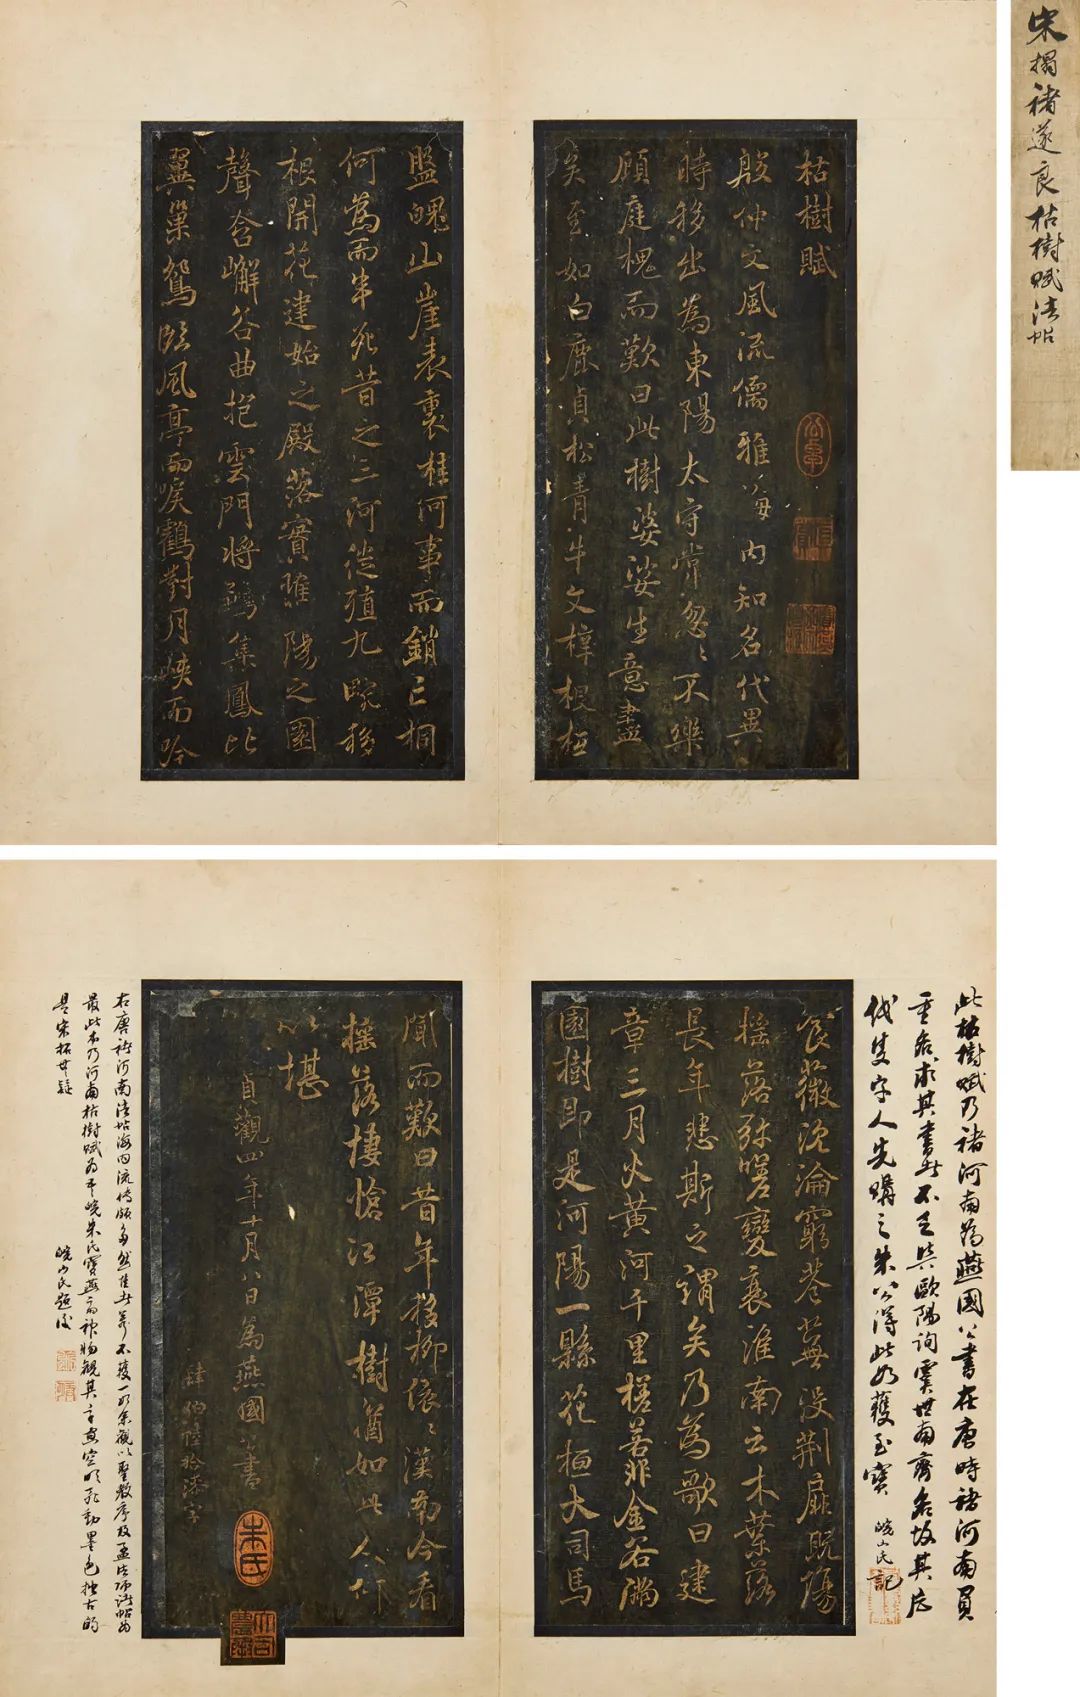 宋搨褚遂良枯樹賦法帖
枯樹賦
殷仲文風流儒雅海内知名代異
時移出為東陽太守常忽〻不樂
顧庭槐而歎曰此樹婆娑生意盡
矣至如白鹿貞松青牛文梓根柢
盤魄山崖表裏桂何事而銷亡桐
何為而半死昔之三河徙殖九畹移
根開花建始之殿落實睢陽之園
聲含嶰谷曲抱雲門將雛集鳳比
翼巢鴛臨風亭而唳鶴對月峽而吟
此枯樹賦乃褚河南為燕國公書在唐時褚河南員
重名求其書者不乏與歐陽詢虞世南齊名故其片
伐隻字人先購之朱公得此如獲至寶
皖山民記
食薇沈淪窮巷蕪没荆扉既傷
揺落弥嗟變衰淮南云木葉落
長年悲斯之謂矣乃為歌曰建
章三月火黄河千里槎若非金谷滿
園樹即是河陽一縣花桓大司馬
聞而歎曰昔年移柳依〻漢南今看
揺落悽愴江潭樹猶如此人何
以堪
貞觀四年十月八日為燕國公書
肆伯陸拾柒字
朱氏
右唐褚河南法帖海内流傳頗多然佳者葢不獲一如余觀以聖教序及孟法師諸帖為
最此本乃河南枯樹賦為吾皖朱氏寶燕齋神物觀其字意空明飛動墨色独古的
是宋拓無疑
皖山民題後